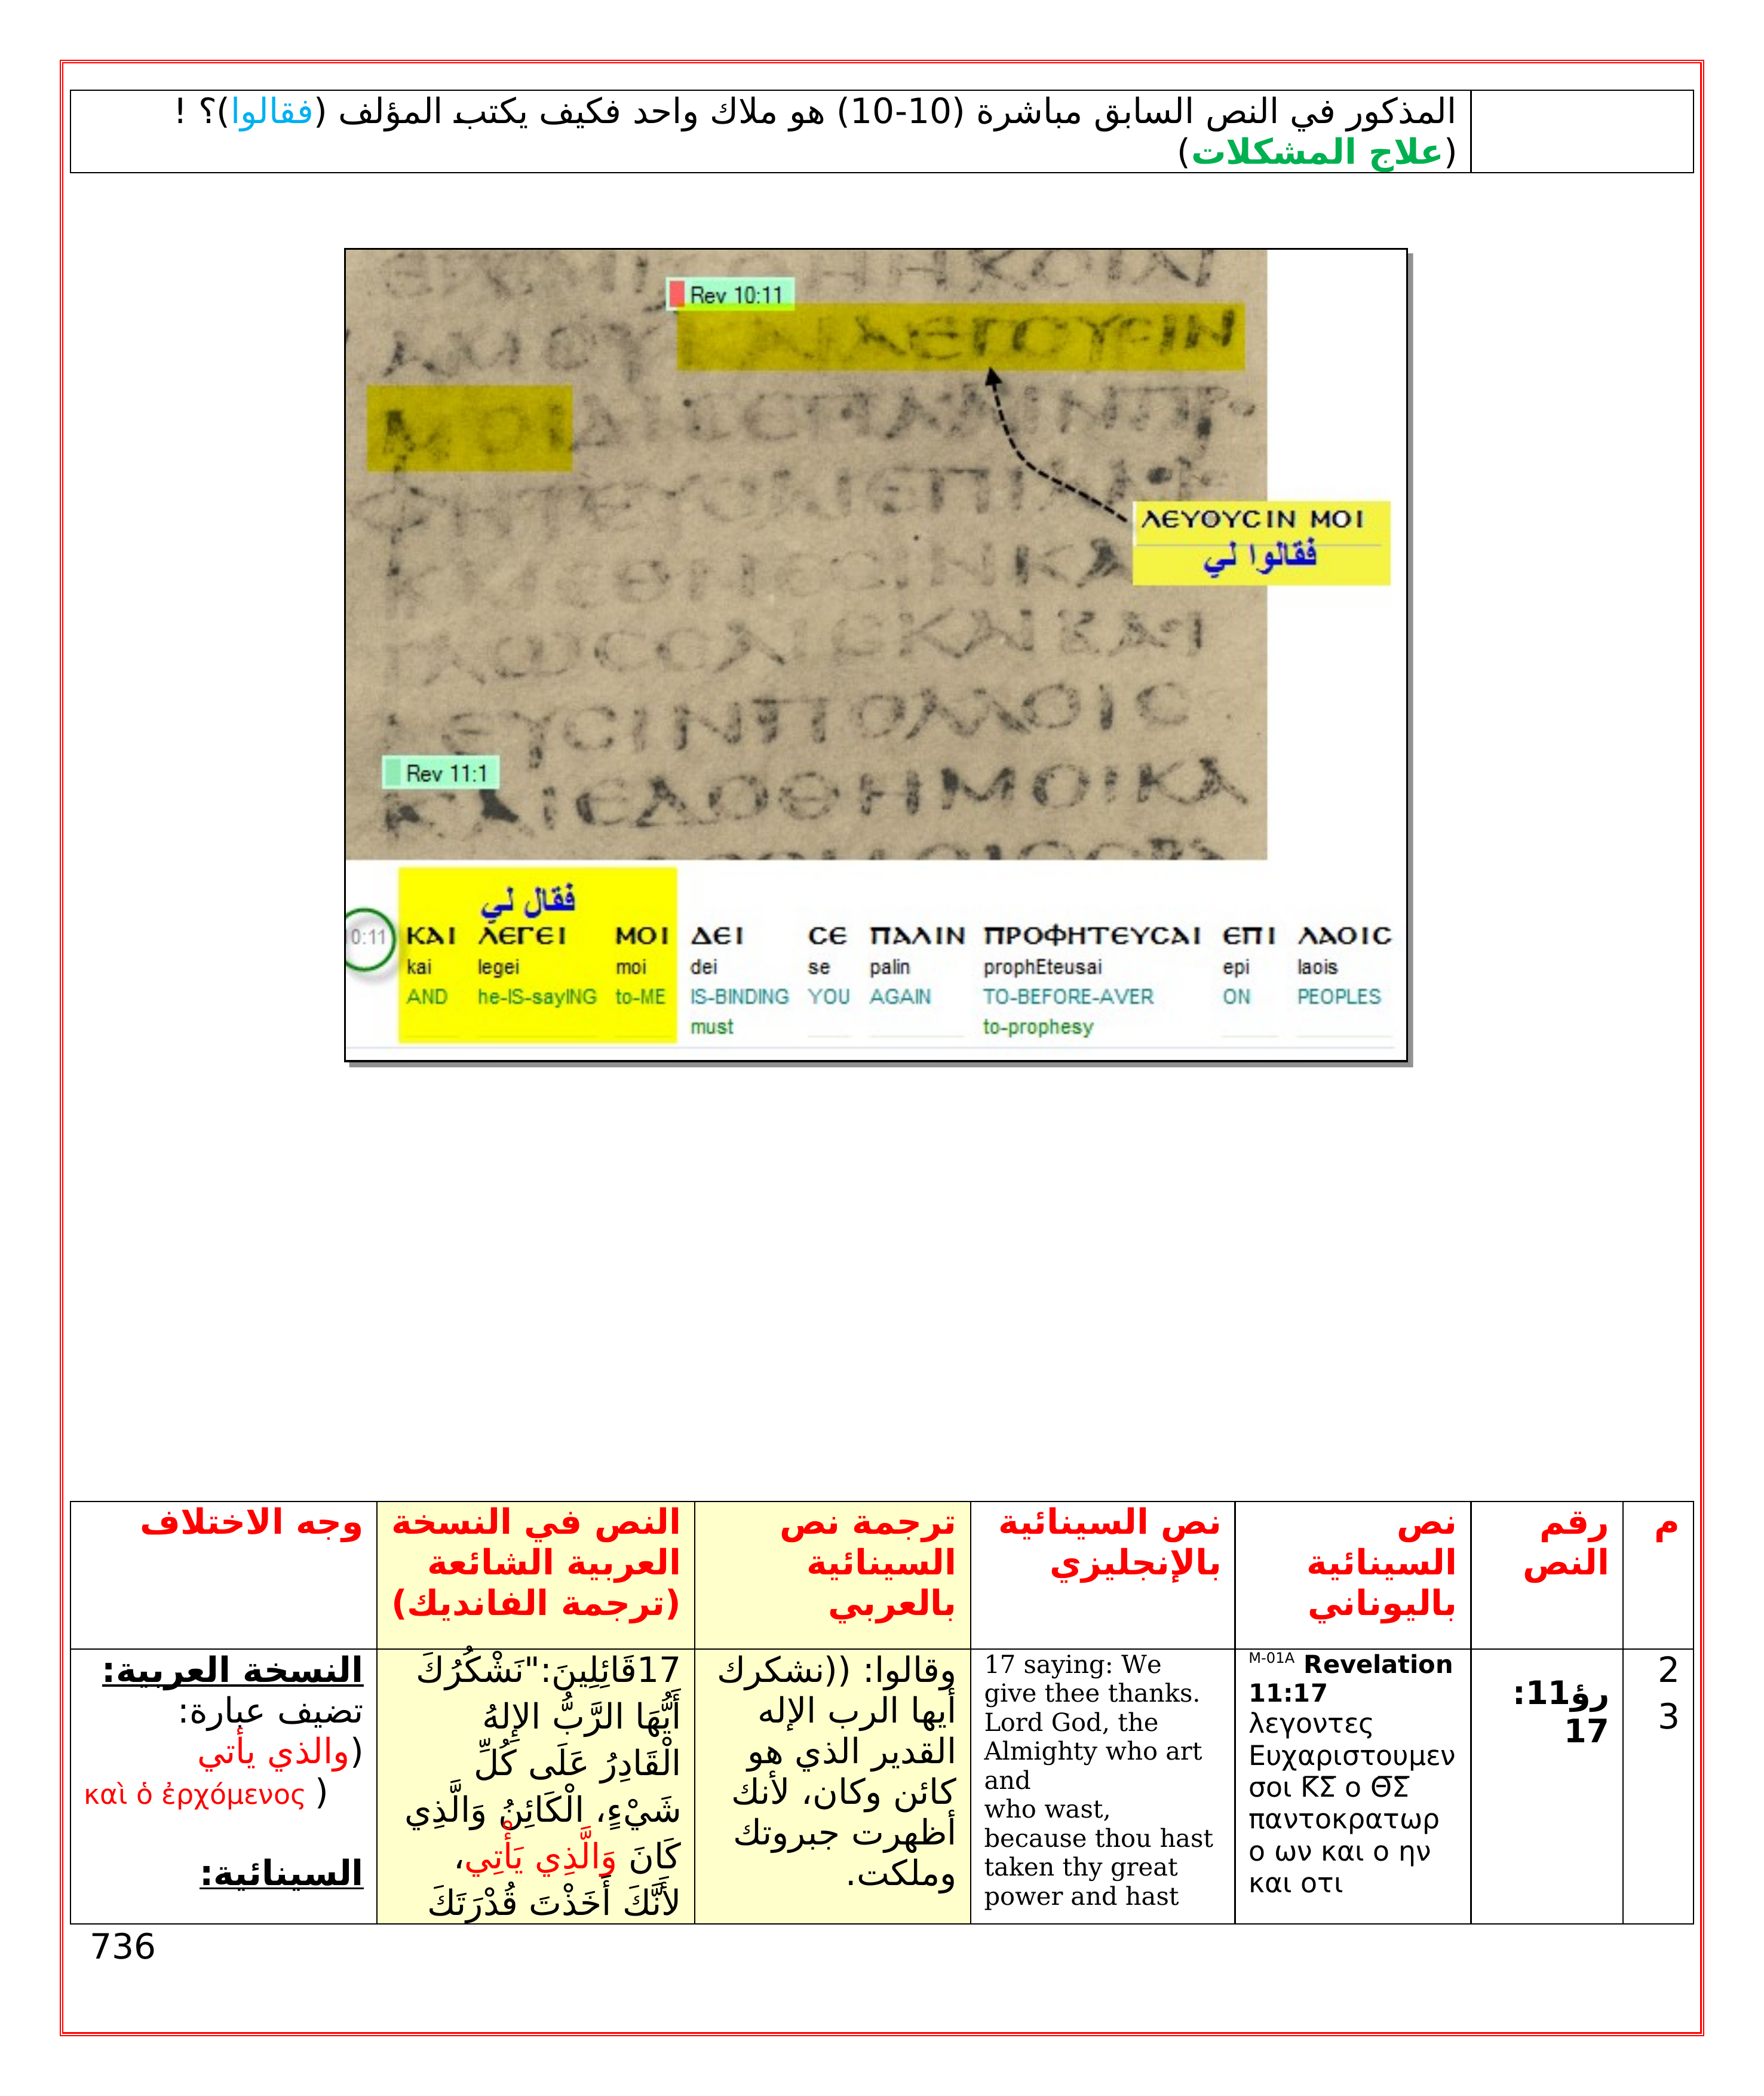 المذكور في النص السابق مباشرة (10-10) هو ملاك واحد فكيف يكتب المؤلف (فقالوا)؟ !
(علاج المشكلات)
Rev 10:11
ΑΜΟΥ ΚΑΙΛΕΓΟΥϹΙΝ
ΜΟΙΔΙϹΕΠΑΛΙΝΠΡ
ΛΕΥΟΥϹΙΝ ΜΟΙ
فقالوا لي
ΓΛΩϹϹΑΙϹΚΑΙΒΑϹΙ
ΛΕΥϹΙΝΠΟΛΛΟΙϹ
Rev 11:1
ΚΑΙΕΔΟΘΗΜΟΙΚΑ
فقال لي
0:11 ΚΑΙ ΛΕΓΕΙ ΜΟΙ ΔΕΙ ϹΕ ΠΑΛΙΝ ΠΡΟΦΗΤΕΥϹΑΙ ΕΠΙ ΛΑΟΙϹ
kai legei moi dei se palin prophEteusai epi laois
AND he-IS-sayING to-ME IS-BINDING YOU AGAIN TO-BEFORE-AVER ON PEOPLES
must to-prophesy
م
رقم
النص
نص
السينائية
باليوناني
نص السينائية
بالإنجليزي
ترجمة نص
السينائية
بالعربي
النص في النسخة
العربية الشائعة
(ترجمة الفانديك)
وجه الاختلاف
2
3
رؤ11:
17
M-01A Revelation
11:17
λεγοντες
Ευχαριστουμεν
σοι Κ̅Σ̅ ο Θ̅Σ̅
παντοκρατωρ
ο ων και ο ην
και οτι
17 saying: We
give thee thanks.
Lord God, the
Almighty who art
and
who wast,
because thou hast
taken thy great
power and hast
وقالوا: ((نشكرك
أيها الرب الإله
القدير الذي هو
كائن وكان، لأنك
أظهرت جبروتك
وملكت.
17قَائِلِينَ:"نَشْكُرُكَ
أَيُّهَا الرَّبُّ الإِلهُ
الْقَادِرُ عَلَى كُلِّ
شَيْءٍ، الْكَائِنُ وَالَّذِي
كَانَ وَالَّذِي يَأْتِي،
لأَنَّكَ أَخَذْتَ قُدْرَتَكَ
النسخة العربية:
تضيف عبارة:
(والذي يأتي
καὶ ὁ ἐρχόμενος )
السينائية:
736